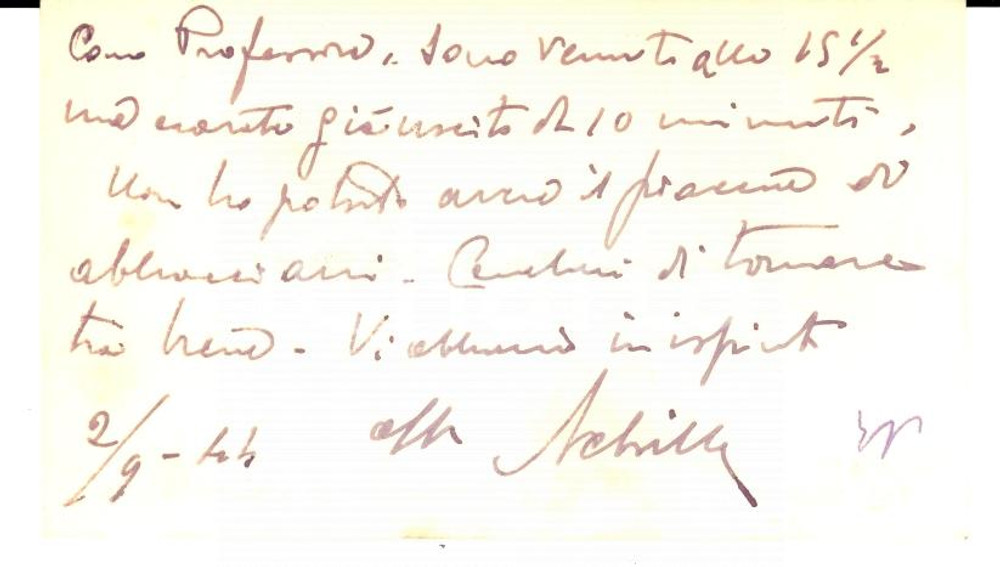 Caro Professore, sono venuto alle 15 1/2
ma eravate già uscito da 10 minuti,
Non ho potuto avere il piacere di
abbracciarvi - di tornare
tra breve - Vi abbraccio in ispirito
2/9 - 44 aff Achille